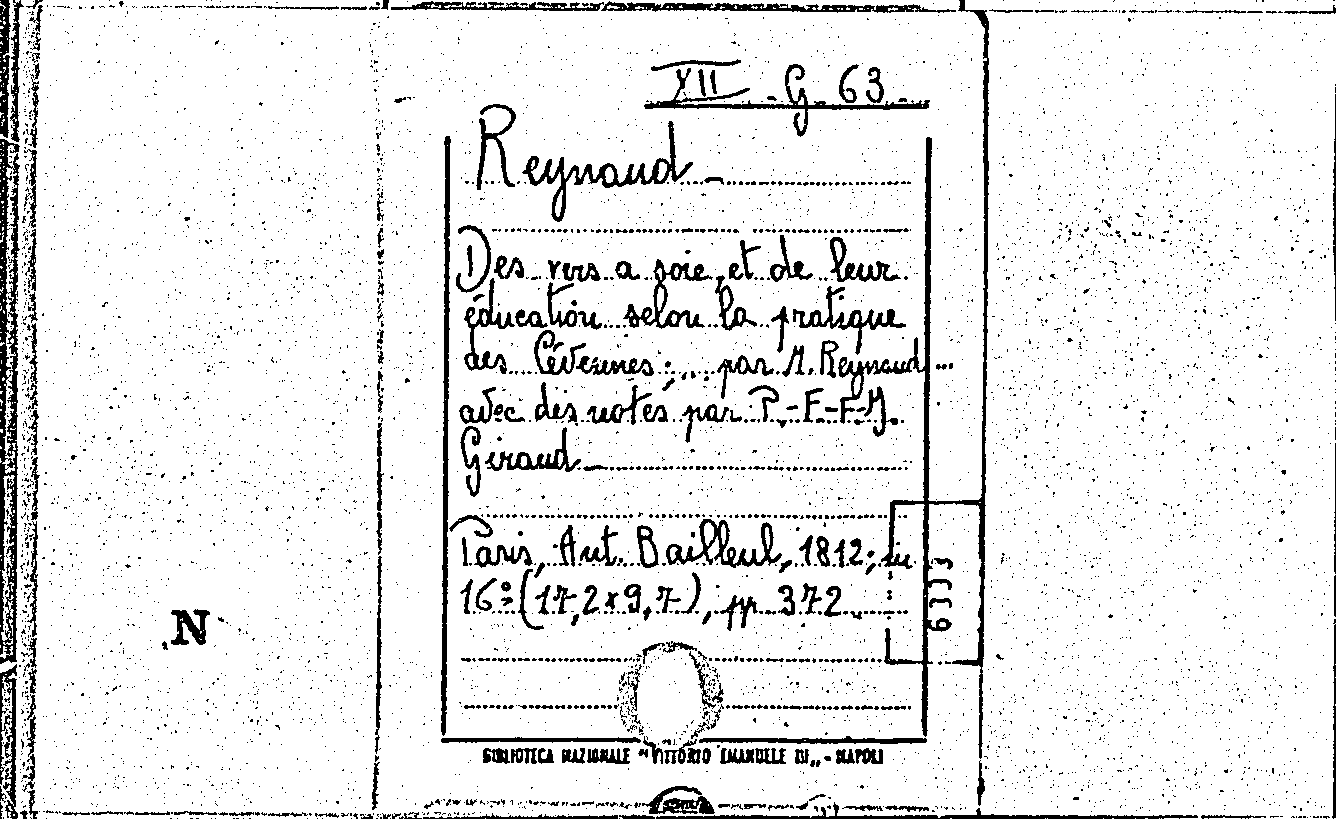 XII G 63
Reynaud
Des vers a soie, et de leur
éducation selon la pratique
des Cévennes; ... par M. Reynaud ...
avec des notes par P.-F.-F.-J.
Giraud
Paris, Ant. Bailleul, 1812; in
16º (17,2x9,7), pp 372
6333
N
BIBLIOTECA NAZIONALE "VITTORIO EMANUELE III" - NAPOLI